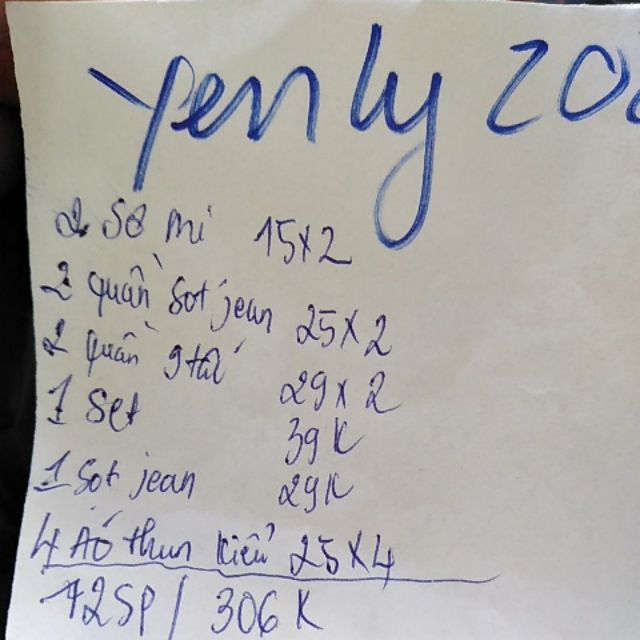 Yenly 20
2 Sơ mi 15x2
2 quần sot jean 25x2
2 quần 9 tấ 29x2
1 Set 39K
1 Sot jean 29K
4 Áo thun kiểu 25x4
12SP / 306K